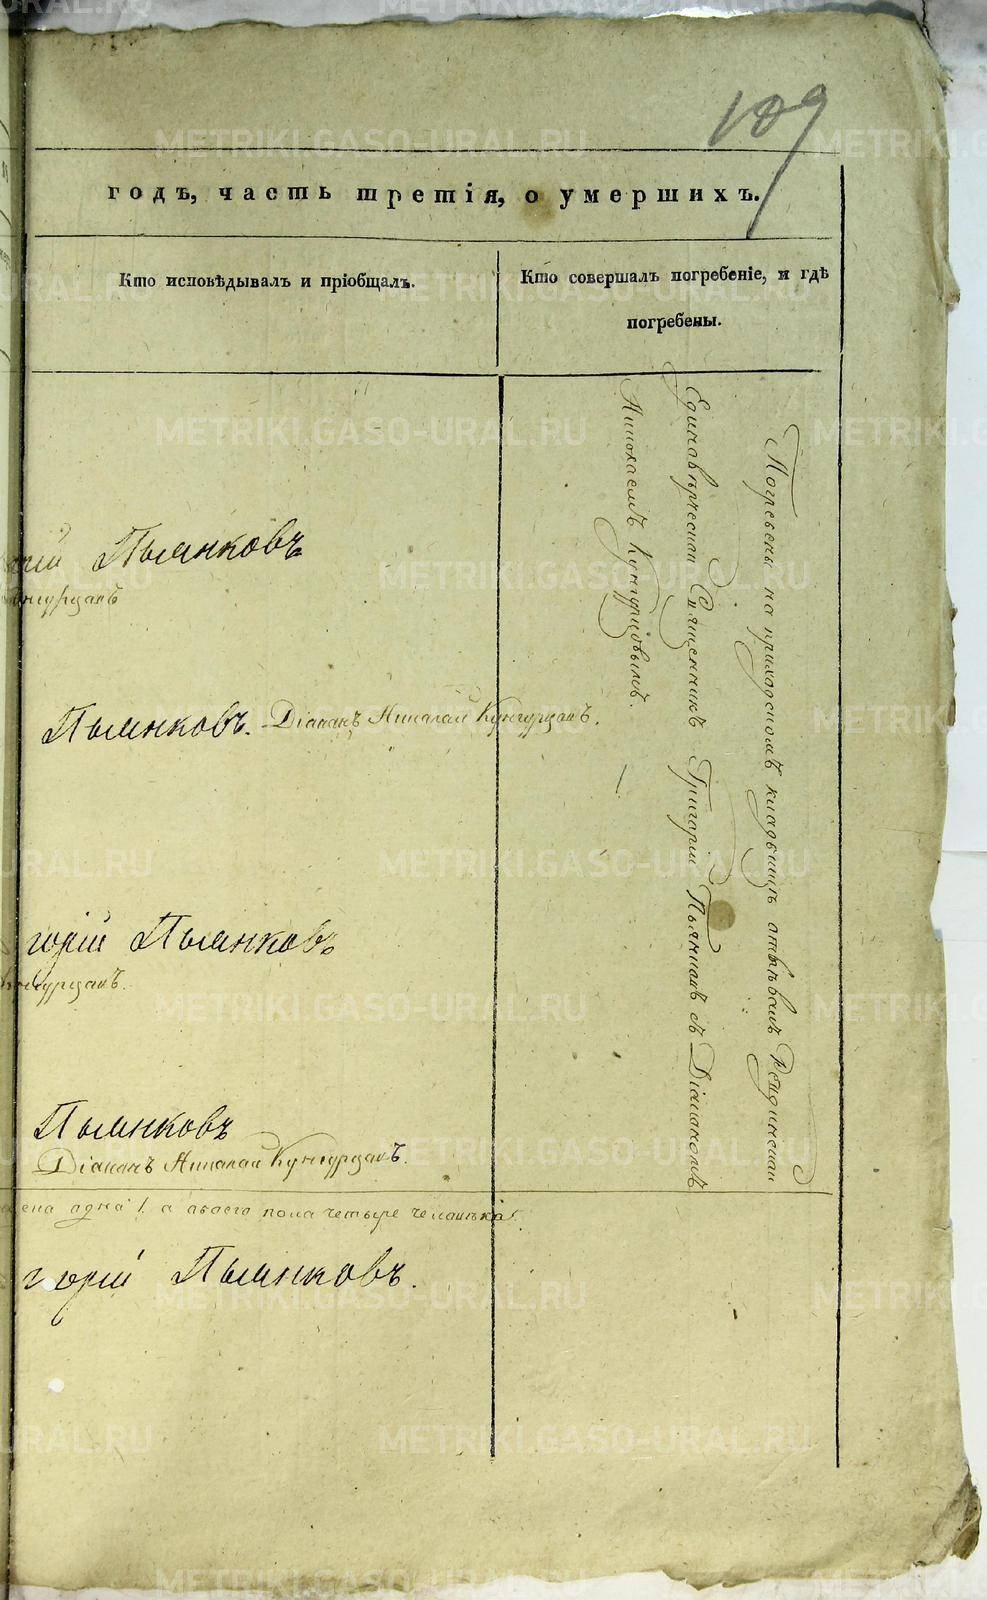 109
годъ, часть третія, о умершихъ.
Кто исповѣдывалъ и пріобщалъ.
Кто совершалъ погребеніе, и гдѣ
погребены.
Погребены на приходскомъ кладбищѣ отпѣваемъ
Единовѣрческой Священникъ Григорий Пьянковъ съ Діакономъ
Николаемъ Кунгурцовымъ.
Пьянковъ
Пьянковъ. Діаконъ Николай Кунгурцовъ.
горій Пьянковъ
Пьянковъ
Діаконъ Николай Кунгурцовъ.
одна 1. а обоего пола четыре человѣка.
горій Пьянковъ.
METRIKI.GASO-URAL.RU